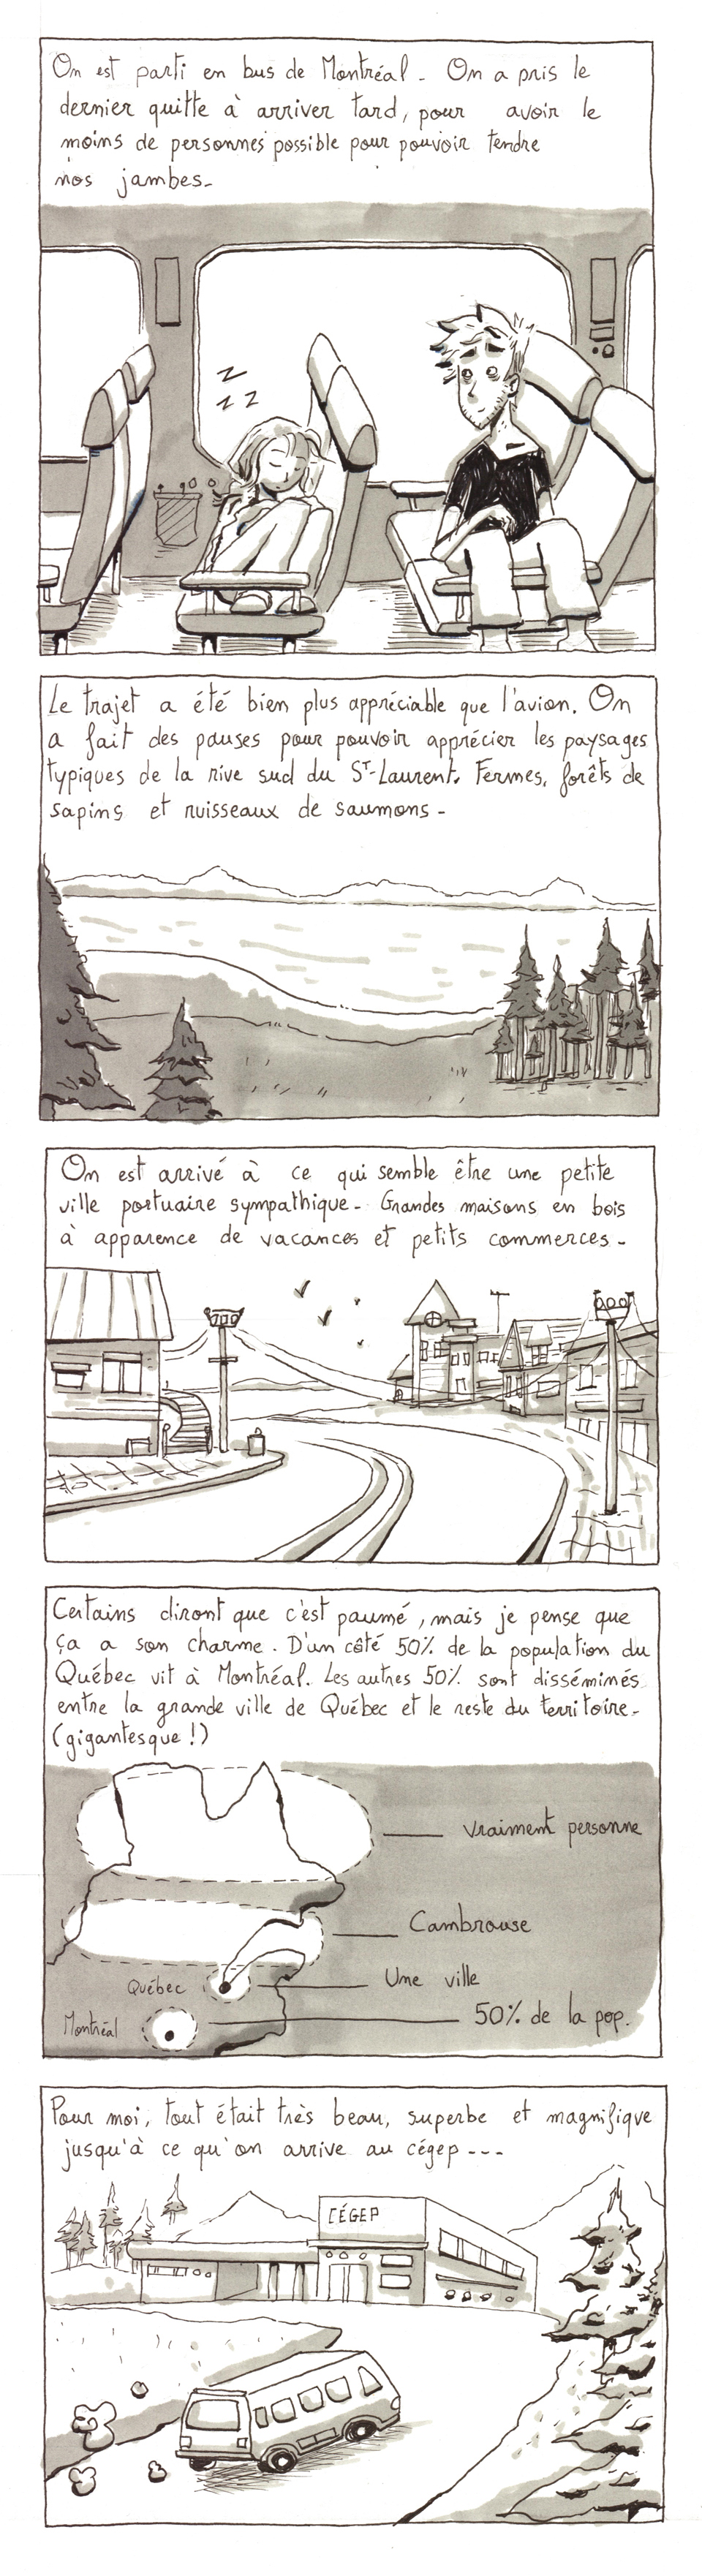 On est parti en bus de Montréal. On a pris le
dernier quitte à arriver tard, pour avoir le
moins de personnes possible pour pouvoir tendre
nos jambes.
Z
Z Z
Le trajet a été bien plus appréciable que l'avion. On
a fait des pauses pour pouvoir apprécier les paysages
typiques de la rive sud du ST-Laurent. Fermes, forêts de
sapins et ruisseaux de saumons.
On est arrivé à ce qui semble être une petite
ville portuaire sympathique. Grandes maisons en bois
à apparence de vacances et petits commerces.
Certains diront que c'est paumé, mais je pense que
ça a son charme. D'un côté 50% de la population du
Québec vit à Montréal. Les autres 50% sont disséminés
entre la grande ville de Québec et le reste du territoire.
(gigantesque !)
vraiment personne
Cambrouse
Québec
Une ville
Montréal
50% de la pop.
Pour moi, tout était très beau, superbe et magnifique
jusqu'à ce qu'on arrive au cégep ---
CÉGEP